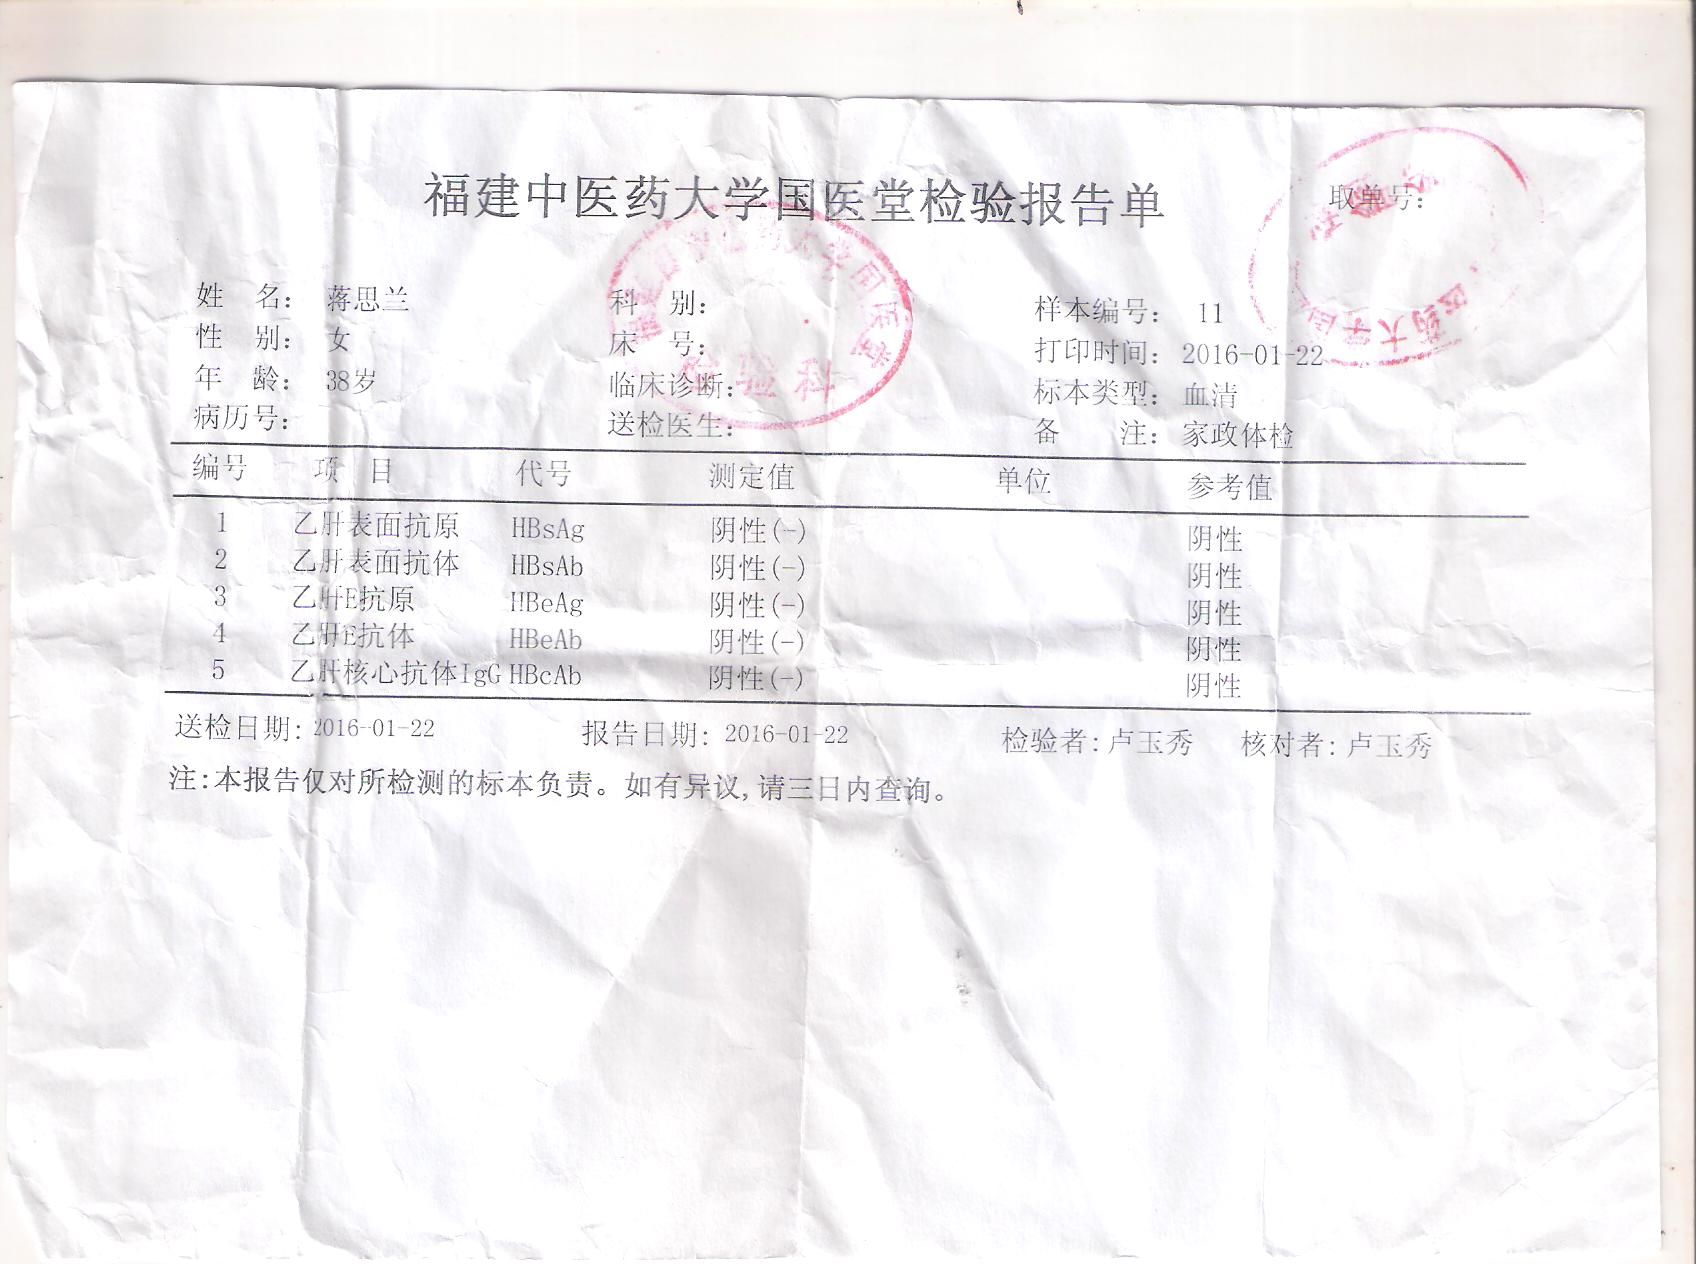 福建中医药大学国医堂检验报告单
取单号:
姓 名: 蒋思兰 科 别: 样本编号: 11
性 别: 女 床 号: 打印时间: 2016-01-22
年 龄: 38岁 临床诊断: 标本类型: 血清
病历号: 送检医生: 备 注: 家政体检
编号 项 目 代号 测定值 单位 参考值
1 乙肝表面抗原 HBsAg 阴性(-) 阴性
2 乙肝表面抗体 HBsAb 阴性(-) 阴性
3 乙肝E抗原 HBeAg 阴性(-) 阴性
4 乙肝E抗体 HBeAb 阴性(-) 阴性
5 乙肝核心抗体IgG HBcAb 阴性(-) 阴性
送检日期: 2016-01-22 报告日期: 2016-01-22 检验者: 卢玉秀 核对者: 卢玉秀
注:本报告仅对所检测的标本负责。如有异议,请三日内查询。
检验科